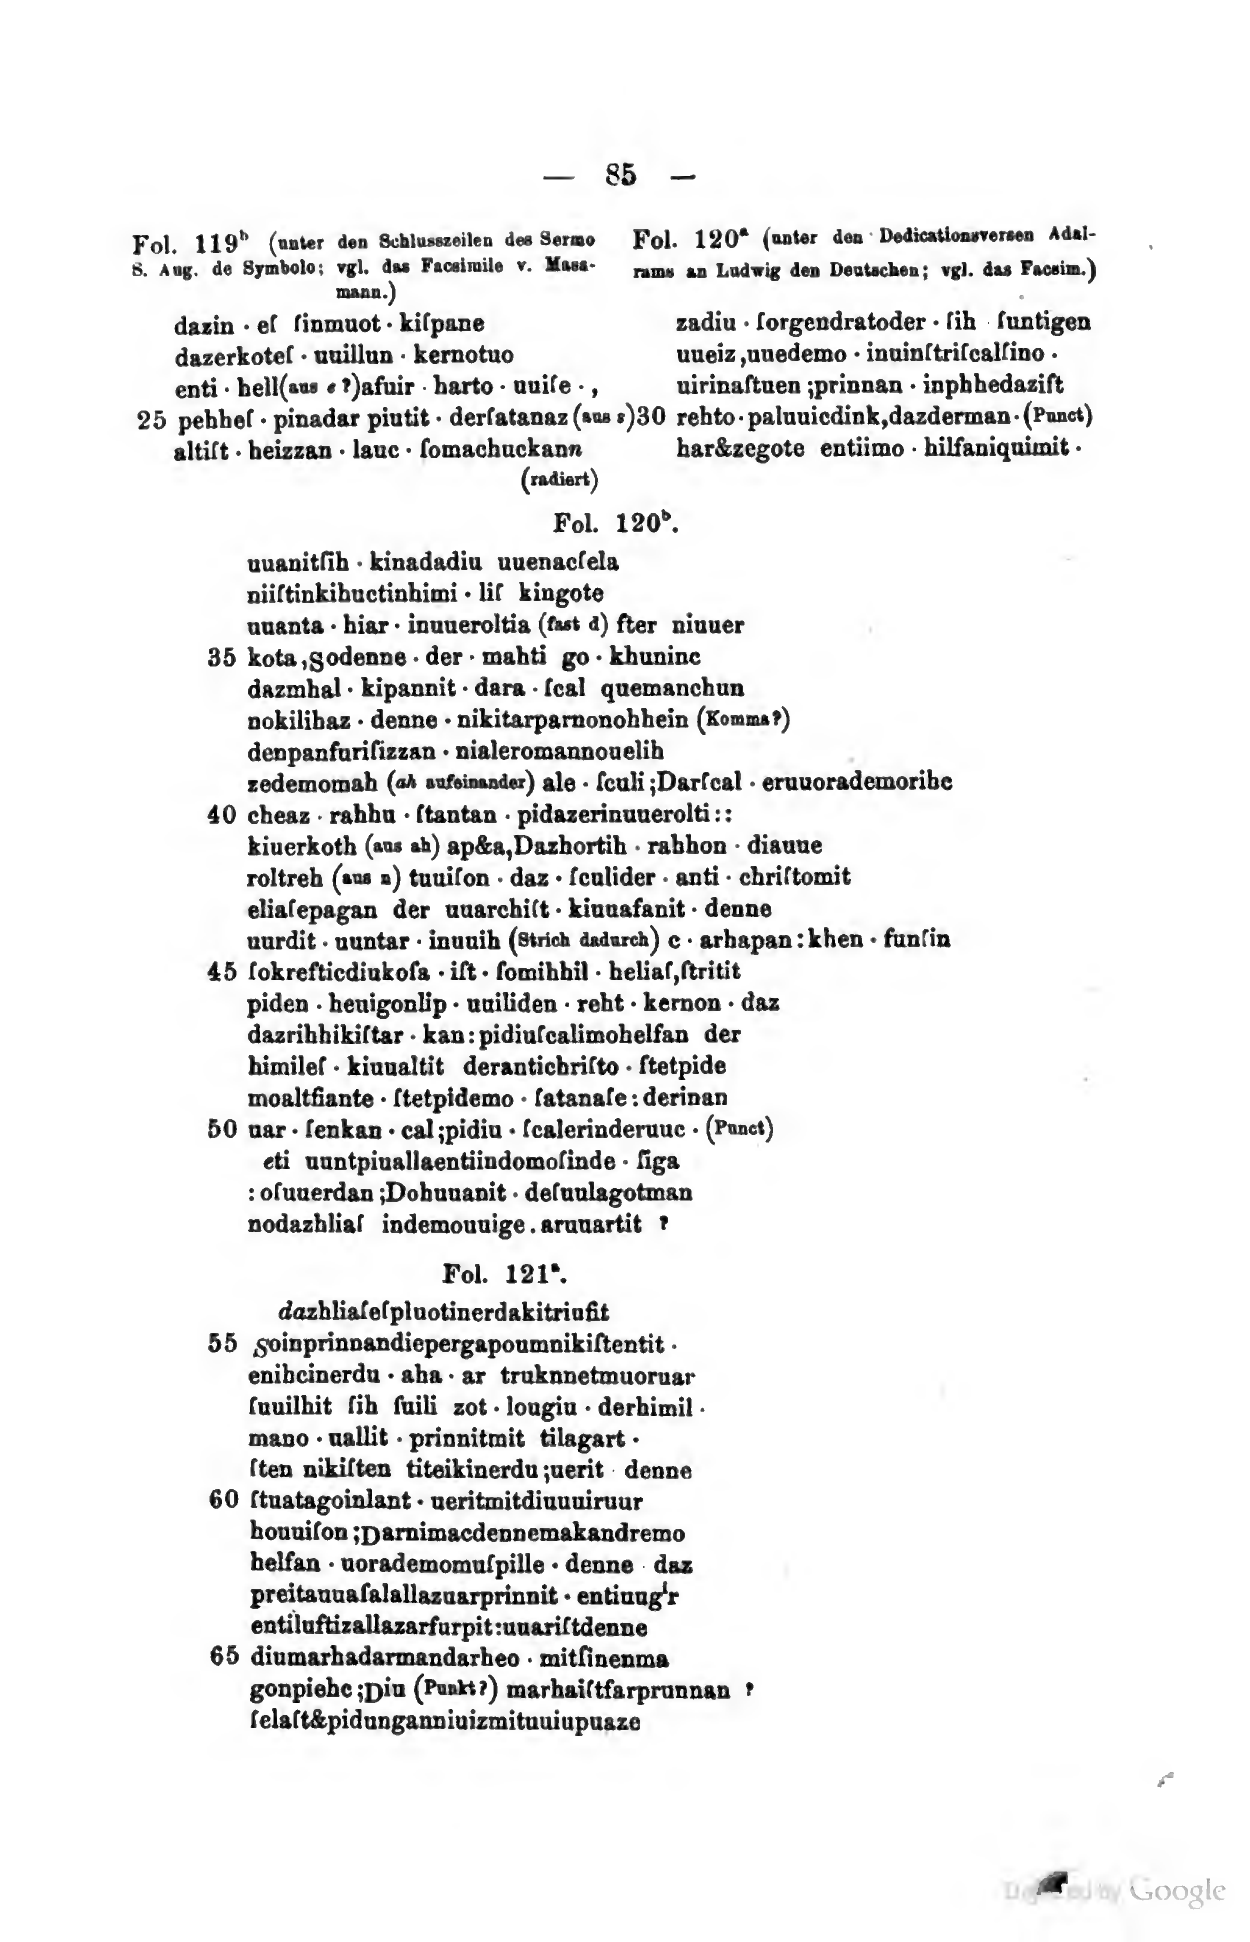 — 85 —
Fol. 119ᵇ (unter den Schlusszeilen des Sermo
S. Aug. de Symbolo; vgl. das Facsimile v. Mass-
mann.)
dazin · eſ ſinmuot · kiſpane
dazerkoteſ · uuillun · kernotuo
enti · hell(aus e ?)afuir · harto · uuiſe · ,
25 pehheſ · pinadar piutit · derſatanaz (aus s)
altiſt · heizzan · lauc · ſomachuckann
(radiert)
Fol. 120ᵃ (unter den Dedicationsversen Adal-
rams an Ludwig den Deutschen; vgl. das Facsim.)
zadiu · ſorgendratoder · ſih ſuntigen
uueiz ,uuedemo · inuinſtriſcalſino ·
uirinaſtuen ;prinnan · inphhedaziſt
30 rehto · paluuicdink,dazderman · (Punct)
har&zegote entiimo · hilfaniquimit ·
Fol. 120ᵇ.
uuanitſih · kinadadiu uuenacſela
niiſtinkihuctinhimi · liſ kingote
uuanta · hiar · inuueroltia (fast d) fter niuuer
35 kota,Sodenne · der · mahti go · khuninc
dazmhal · kipannit · dara · ſcal quemanchun
nokilihaz · denne · nikitarparnonohhein (Komma?)
denpanfuriſizzan · nialeromannouelih
zedemomah (ah aufeinander) ale · ſculi ;Darſcal · eruuorademorihc
40 cheaz · rahhu · ſtantan · pidazerinuuerolti::
kiuerkoth (aus ah) ap&a,Dazhortih · rahhon · diauue
roltreh (aus n) tuuiſon · daz · ſculider · anti · chriſtomit
eliaſepagan der uuarchiſt · kiuuafanit · denne
uurdit · uuntar · inuuih (Strich dadurch) c · arhapan : khen · funſin
45 ſokreſticdiukoſa · iſt · ſomihhil · heliaſ,ſtritit
piden · heuigonlip · uuiliden · reht · kernon · daz
dazrihhikiſtar · kan : pidiuſcalimohelfan der
himileſ · kiuualtit derantichriſto · ſtetpide
moaltfiante · ſtetpidemo · ſatanaſe : derinan
50 uar · ſenkan · cal ;pidiu · ſcalerinderuuc · (Punct)
eti uuntpiuallaentiindomoſinde · ſiga
: oſuuerdan ;Dohuuanit · deſuulagotman
nodazhliaſ indemouuige . aruuartit ?
Fol. 121ᵃ.
dazhliaſeſpluotinerdakitriufit
55 Soinprinnandiepergapoumnikiſtentit ·
enihcinerdu · aha · ar truknnetmuoruar
ſuuilhit ſih ſuili zot · lougiu · derhimil ·
mano · uallit · prinnitmit tilagart ·
ſten nikiſten titeikinerdu ;uerit denne
60 ſtuatagoinlant · ueritmitdiuuuiruur
houuiſon ;Darnimacdennemakandremo
helfan · uorademomuſpille · denne daz
preitauuaſalallazuarprinnit · entiuugⁱr
entiluftizallazarfurpit:uuariſtdenne
65 diumarhadarmandarheo · mitſinenma
gonpiehc ;Diu (Punkt?) marhaiſtfarprunnan ?
ſelaſt&pidunganniuizmituuiupuaze
Digitized by Google